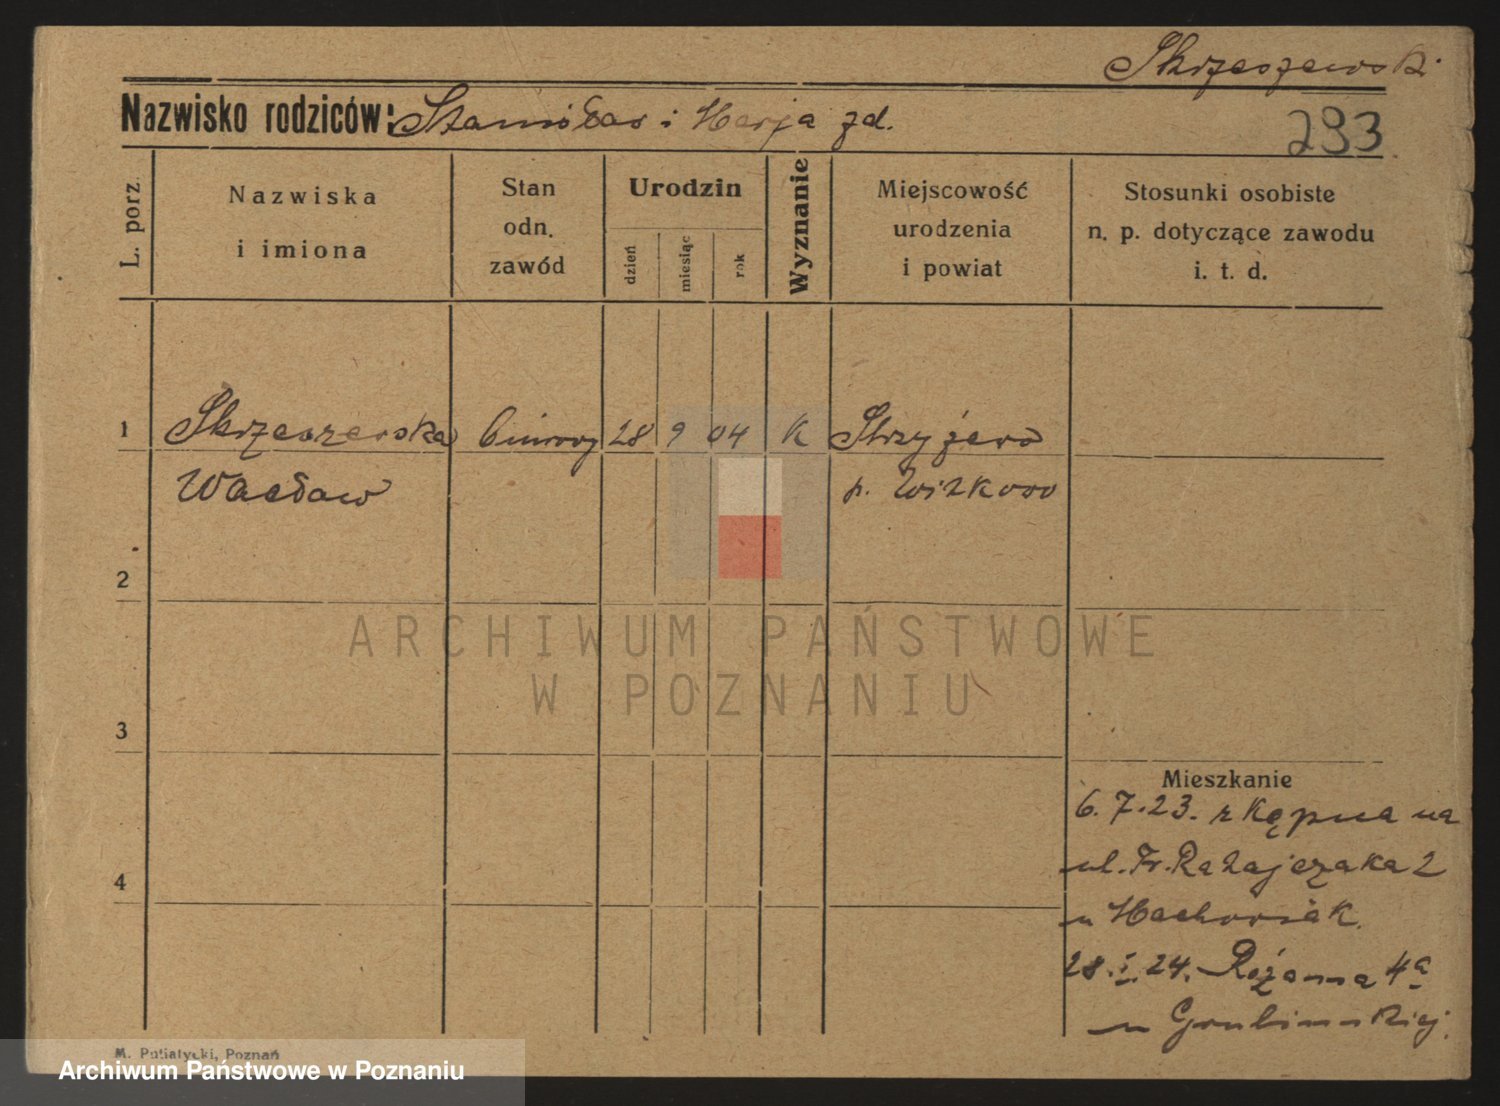 Skrzeszewski.
Nazwisko rodziców: Stanisław i Marja zd.
293
L. porz.
Nazwiska
i imiona
Stan
odn.
zawód
Urodzin
dzień
miesiąc
rok
Wyznanie
Miejscowość
urodzenia
i powiat
Stosunki osobiste
n. p. dotyczące zawodu
i. t. d.
1 Skrzeszewska biurowy 28 9 04 K Strzyżewo
Wacław p. Witkowo
2
3
4
Mieszkanie
6.7.23. z Kępna na
ul. Fr. Ratajczaka 2
u
28.I.24. Różanna 4a
u
M. Putiatycki, Poznań
ARCHIWUM PAŃSTWOWE
W POZNANIU
Archiwum Państwowe w Poznaniu